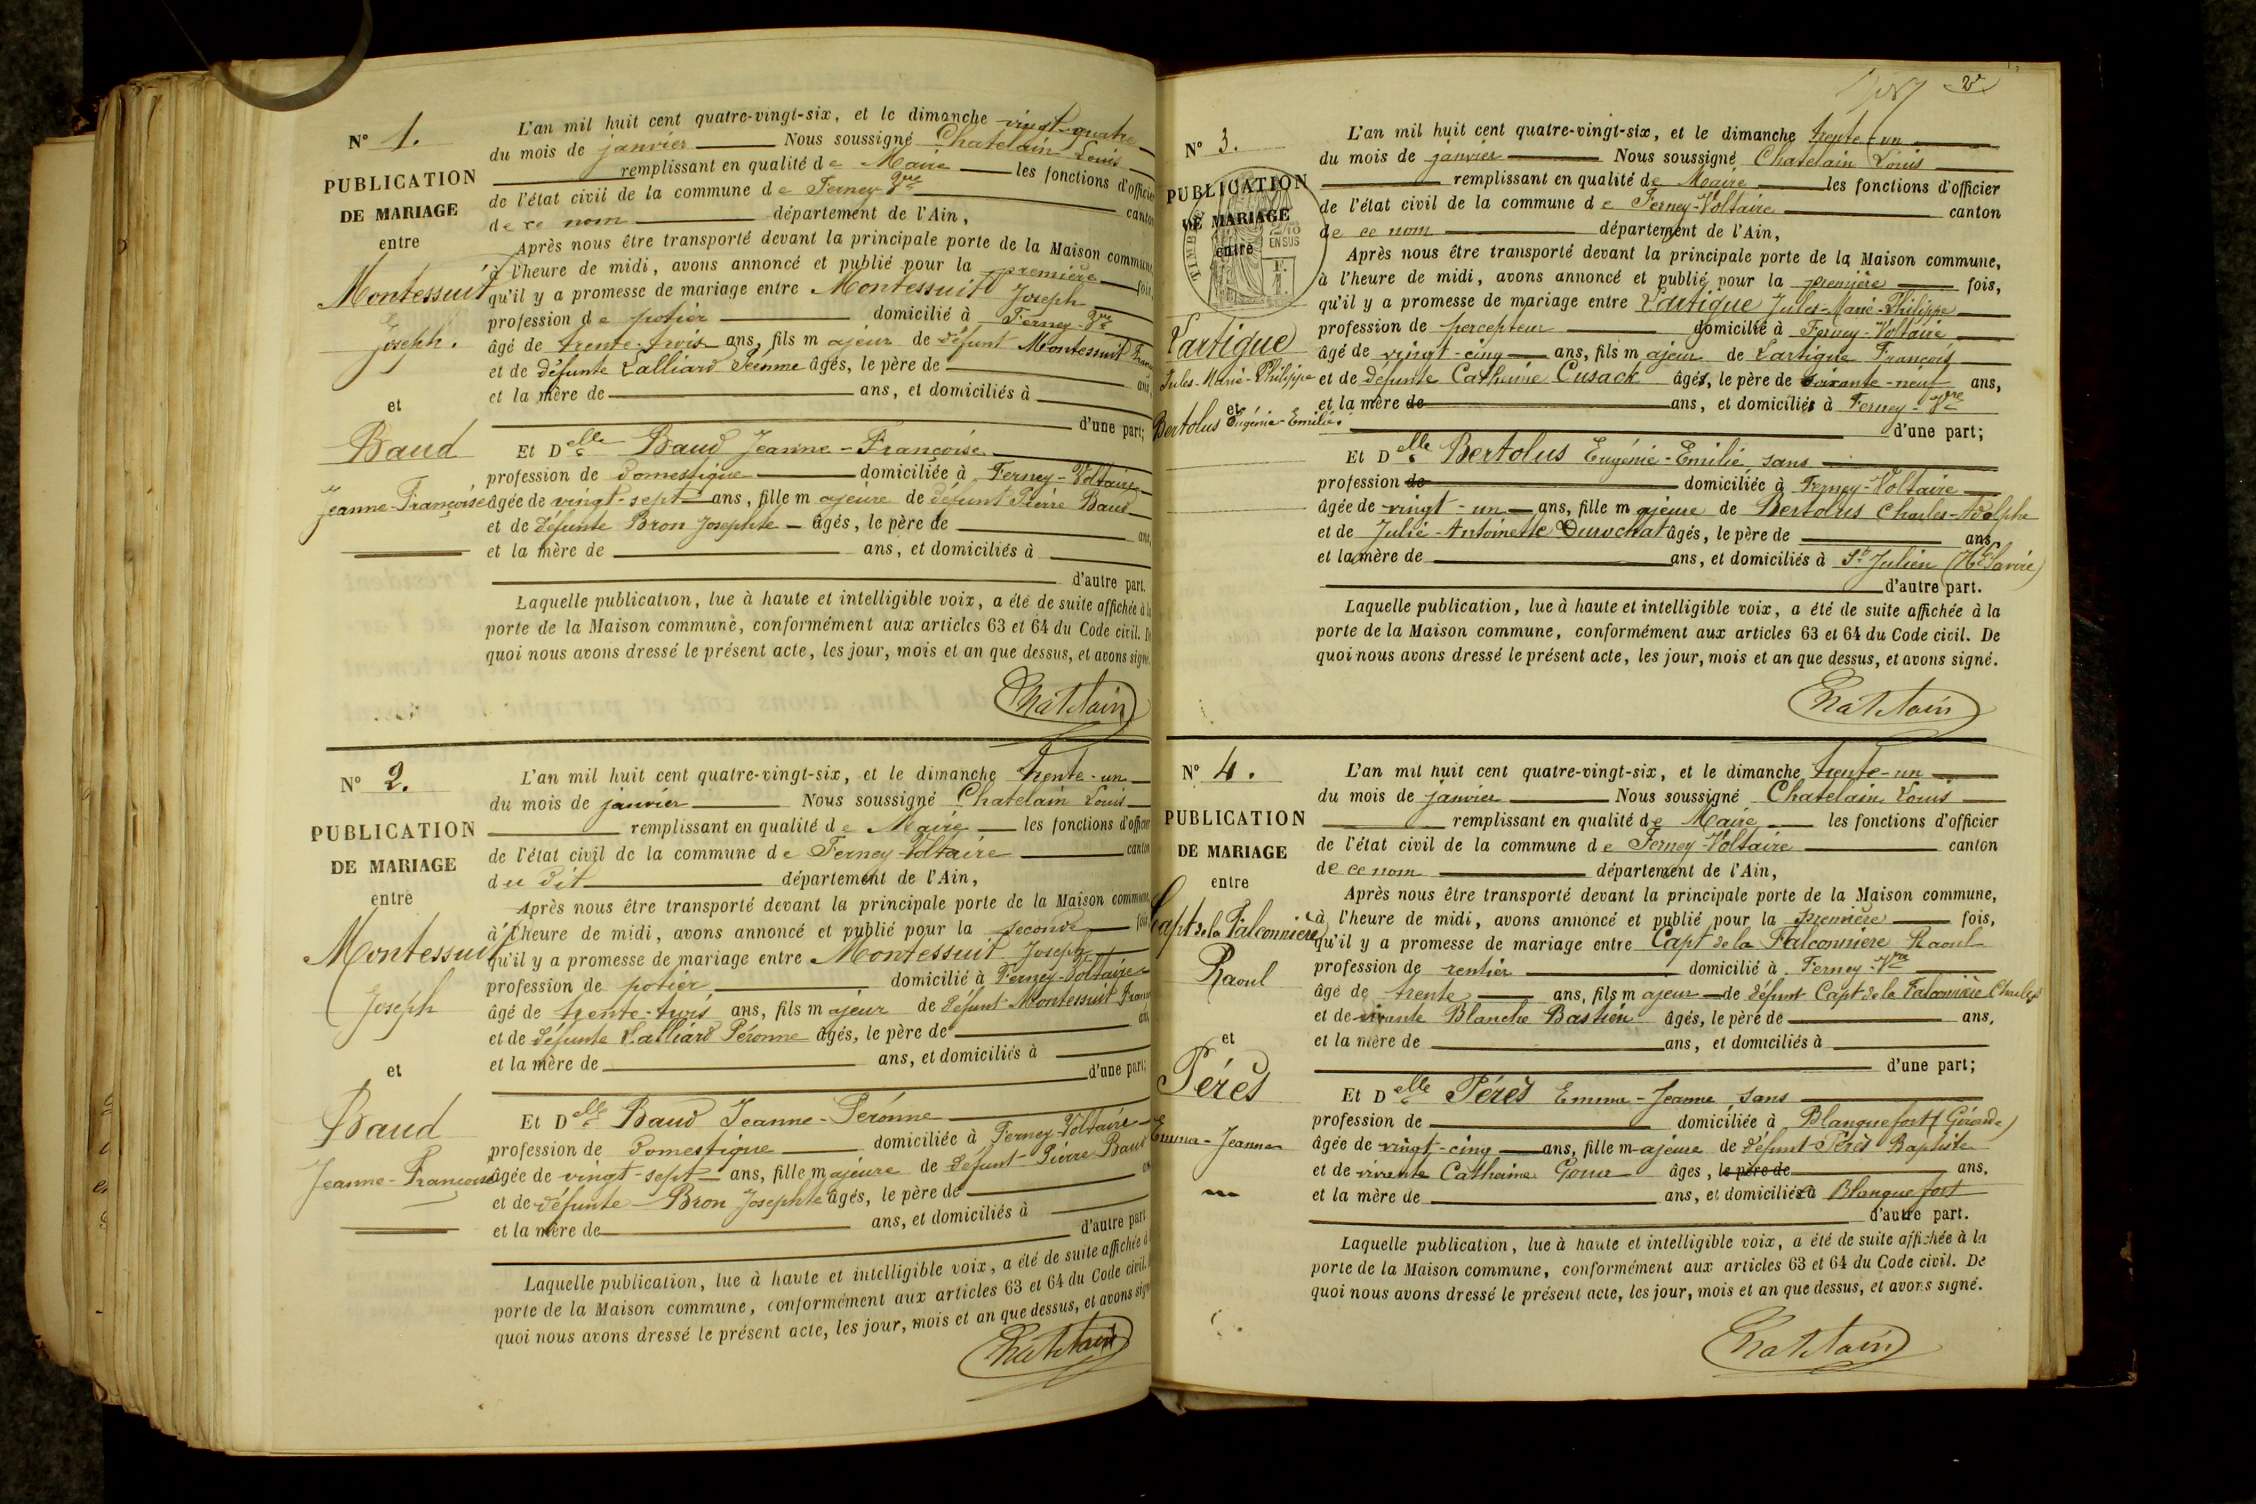 N° 1.
PUBLICATION
DE MARIAGE
entre
Montessuit
Joseph.
et
Baud
Jeanne-Françoise
L'an mil huit cent quatre-vingt-six, et le dimanche vingt-quatre
du mois de janvier Nous soussigné Chatelain Louis
remplissant en qualité de Maire les fonctions d'officier
de l'état civil de la commune de Ferney-Vre canton
de ce nom département de l'Ain,
Après nous être transporté devant la principale porte de la Maison commune,
à l'heure de midi, avons annoncé et publié pour la première fois,
qu'il y a promesse de mariage entre Montessuit Joseph
profession de potier domicilié à Ferney-Vre
âgé de trente-trois ans, fils majeur de défunt Montessuit
et de défunte Lalliard âgés, le père de ans,
et la mère de ans, et domiciliés à
d'une part;
Et Delle Baud Jeanne-Françoise
profession de domestique domiciliée à Ferney-Voltaire
âgée de vingt-sept ans, fille majeure de défunt Pierre Baud
et de défunte Bron Josephte âgés, le père de ans,
et la mère de ans, et domiciliés à
d'autre part.
Laquelle publication, lue à haute et intelligible voix, a été de suite affichée à la
porte de la Maison commune, conformément aux articles 63 et 64 du Code civil. De
quoi nous avons dressé le présent acte, les jour, mois et an que dessus, et avons signé.
Chatelain
N° 2.
PUBLICATION
DE MARIAGE
entre
Montessuit
Joseph
et
Baud
Jeanne-Françoise
L'an mil huit cent quatre-vingt-six, et le dimanche trente-un
du mois de janvier Nous soussigné Chatelain Louis
remplissant en qualité de Maire les fonctions d'officier
de l'état civil de la commune de Ferney-Voltaire canton
du dit département de l'Ain,
Après nous être transporté devant la principale porte de la Maison commune,
à l'heure de midi, avons annoncé et publié pour la seconde fois,
qu'il y a promesse de mariage entre Montessuit Joseph
profession de potier domicilié à Ferney-Voltaire
âgé de trente-trois ans, fils majeur de défunt Montessuit
et de défunte Lalliard Péronne âgés, le père de ans,
et la mère de ans, et domiciliés à
d'une part;
Et Delle Baud Jeanne-Péronne
profession de domestique domiciliée à Ferney-Voltaire
âgée de vingt-sept ans, fille majeure de défunt Pierre Baud
et de défunte Bron Josephte âgés, le père de ans
et la mère de ans, et domiciliés à
d'autre part
Laquelle publication, lue à haute et intelligible voix, a été de suite affichée à
porte de la Maison commune, conformément aux articles 63 et 64 du Code civil.
quoi nous avons dressé le présent acte, les jour, mois et an que dessus, et avons signé
Chatelain
N° 3.
PUBLICATION
DE MARIAGE
entre
Lartigue
Jules-Marie-Philippe
et
Bertolus Eugénie-Emilie.
L'an mil huit cent quatre-vingt-six, et le dimanche trente-un
du mois de janvier Nous soussigné Chatelain Louis
remplissant en qualité de Maire les fonctions d'officier
de l'état civil de la commune de Ferney-Voltaire canton
de ce nom département de l'Ain,
Après nous être transporté devant la principale porte de la Maison commune,
à l'heure de midi, avons annoncé et publié pour la première fois,
qu'il y a promesse de mariage entre Lartigue Jules-Marie-Philippe
profession de percepteur domicilié à Ferney-Voltaire
âgé de vingt-cinq ans, fils majeur de Lartigue François
et de défunte Catherine Cusack âgés, le père de soixante-neuf ans,
et la mère de ans, et domiciliés à Ferney-Vre
d'une part;
Et Delle Bertolus Eugénie-Emilie, sans
profession de domiciliée à Ferney-Voltaire
âgée de vingt-un ans, fille majeure de Bertolus Charles-Adolphe
et de Julie-Antoinette Duvochat âgés, le père de ans,
et la mère de ans, et domiciliés à St Julien (Hte Savoie)
d'autre part.
Laquelle publication, lue à haute et intelligible voix, a été de suite affichée à la
porte de la Maison commune, conformément aux articles 63 et 64 du Code civil. De
quoi nous avons dressé le présent acte, les jour, mois et an que dessus, et avons signé.
Chatelain
N° 4.
PUBLICATION
DE MARIAGE
entre
Capt de la Falconnière
Raoul
et
Pérès
Emma-Jeanne
L'an mil huit cent quatre-vingt-six, et le dimanche trente-un
du mois de janvier Nous soussigné Chatelain Louis
remplissant en qualité de Maire les fonctions d'officier
de l'état civil de la commune de Ferney-Voltaire canton
de ce nom département de l'Ain,
Après nous être transporté devant la principale porte de la Maison commune,
à l'heure de midi, avons annoncé et publié pour la première fois,
qu'il y a promesse de mariage entre Capt de la Falconnière Raoul
profession de rentier domicilié à Ferney-Vre
âgé de trente ans, fils majeur de défunt Capt de la Falconnière Charles
et de vivante Blanche Bastien âgés, le père de ans,
et la mère de ans, et domiciliés à
d'une part;
Et Delle Pérès Emma-Jeanne, sans
profession de domiciliée à Blanquefort (Gironde)
âgée de vingt-cinq ans, fille majeure de défunt Pérès Baptiste
et de vivante Catherine âgés, le père de ans.
et la mère de ans, et domiciliés à Blanquefort
d'autre part.
Laquelle publication, lue à haute et intelligible voix, a été de suite affichée à la
porte de la Maison commune, conformément aux articles 63 et 64 du Code civil. De
quoi nous avons dressé le présent acte, les jour, mois et an que dessus, et avons signé.
Chatelain